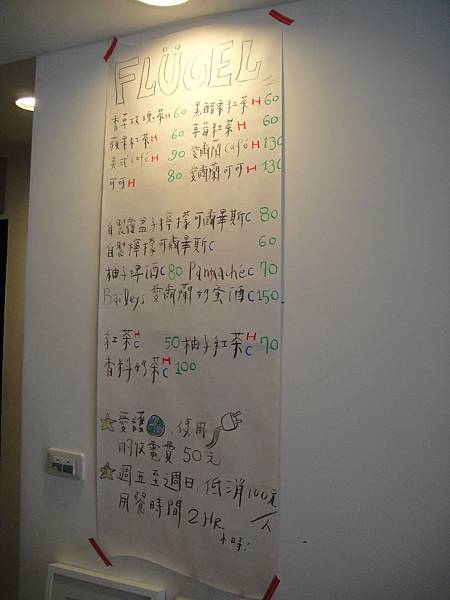 FLÜGEL
香草玫瑰茶H60 黑醋栗紅茶H60
蘋果紅茶H 60 草莓紅茶H 60
美式Café H 90 愛爾蘭Café H 130
可可H 80 愛爾蘭可可H 130
自製覆盆子檸檬可爾畢斯C 80
自製檸檬可爾畢斯C 60
柚子啤酒C80 Pannaché C 70
Baileys愛爾蘭奶蜜酒C150
紅茶H C 50 柚子紅茶H C 70
香料奶茶H C 100
愛護 , 使用
酌收電費 50元
週五至週日, 低消100元/人
用餐時間 2HR
小時!